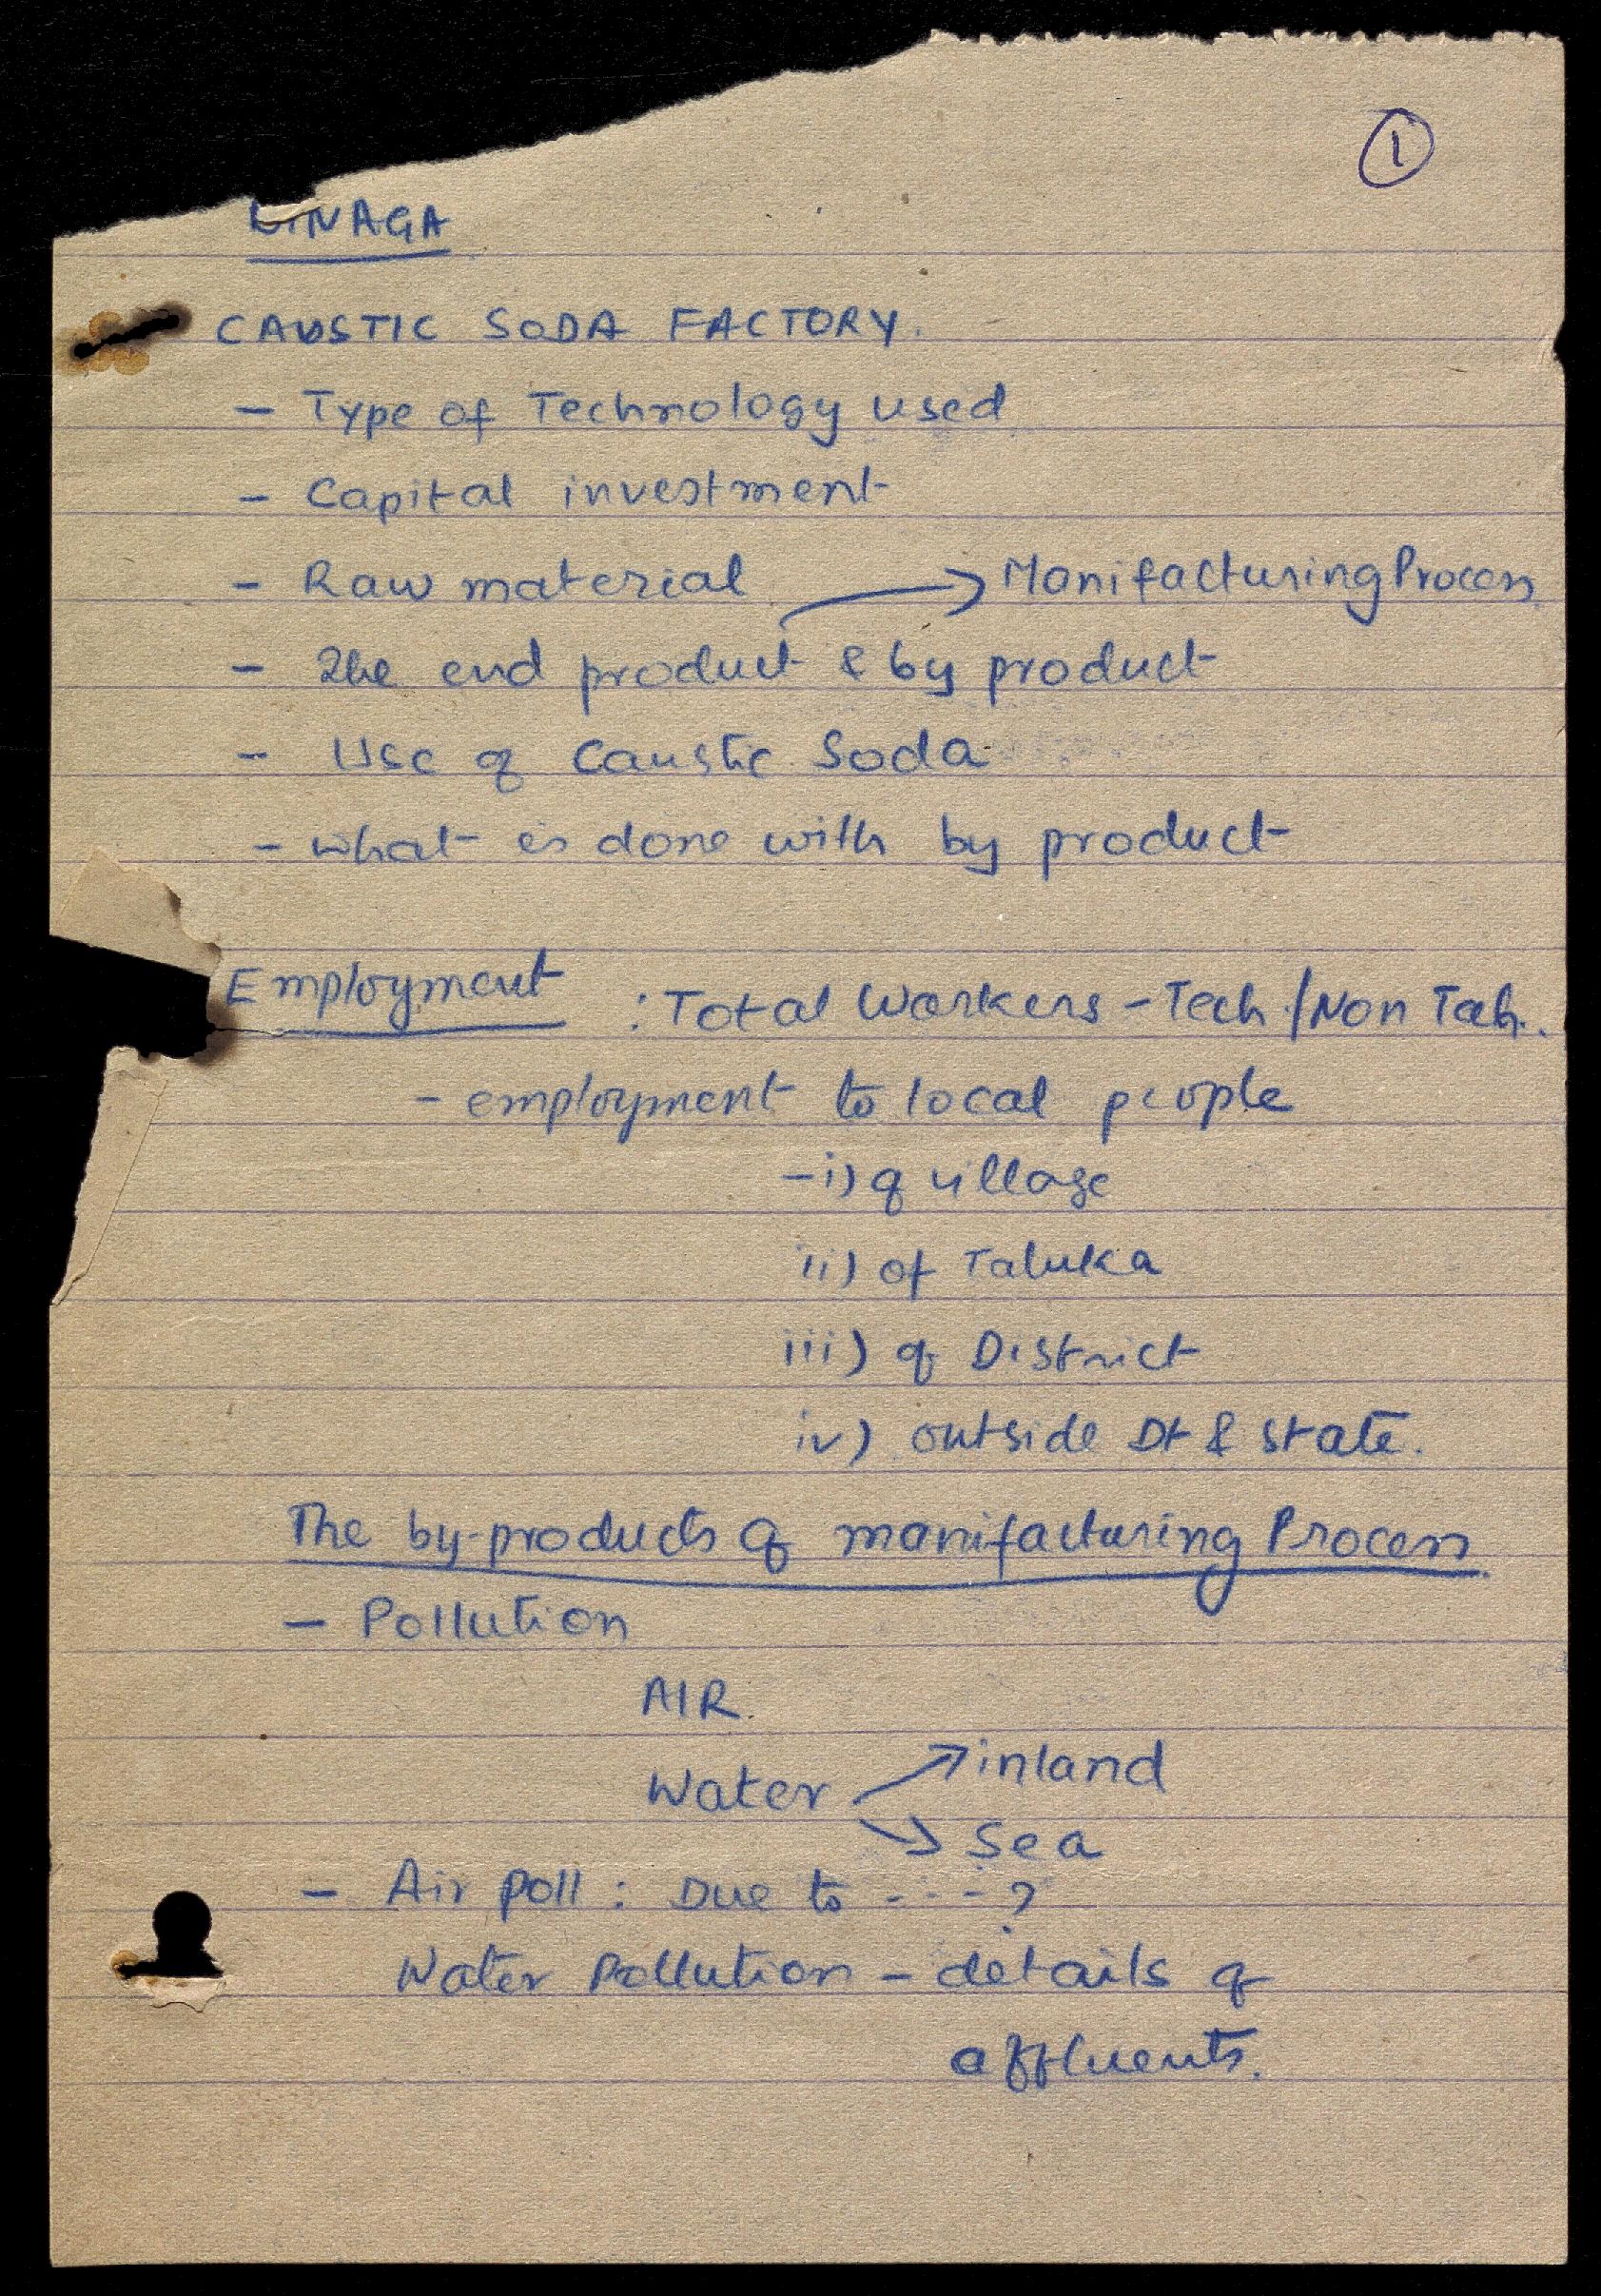 1
BINAGA
CAUSTIC SODA FACTORY.
- Type of Technology used
- Capital investment
- Raw material → Manifacturing Process
- The end product & by product
- Use of Caustic Soda
- what is done with by product
Employment : Total Workers - Tech / Non Tech.
- employment to local people
- i) of village
ii) of Taluka
iii) of District
iv) outside Dt & State.
The by-products of manifacturing Process
- Pollution
AIR.
→ inland
Water
→ Sea
- Air poll : Due to ---- ?
Water Pollution - details of
affluents.